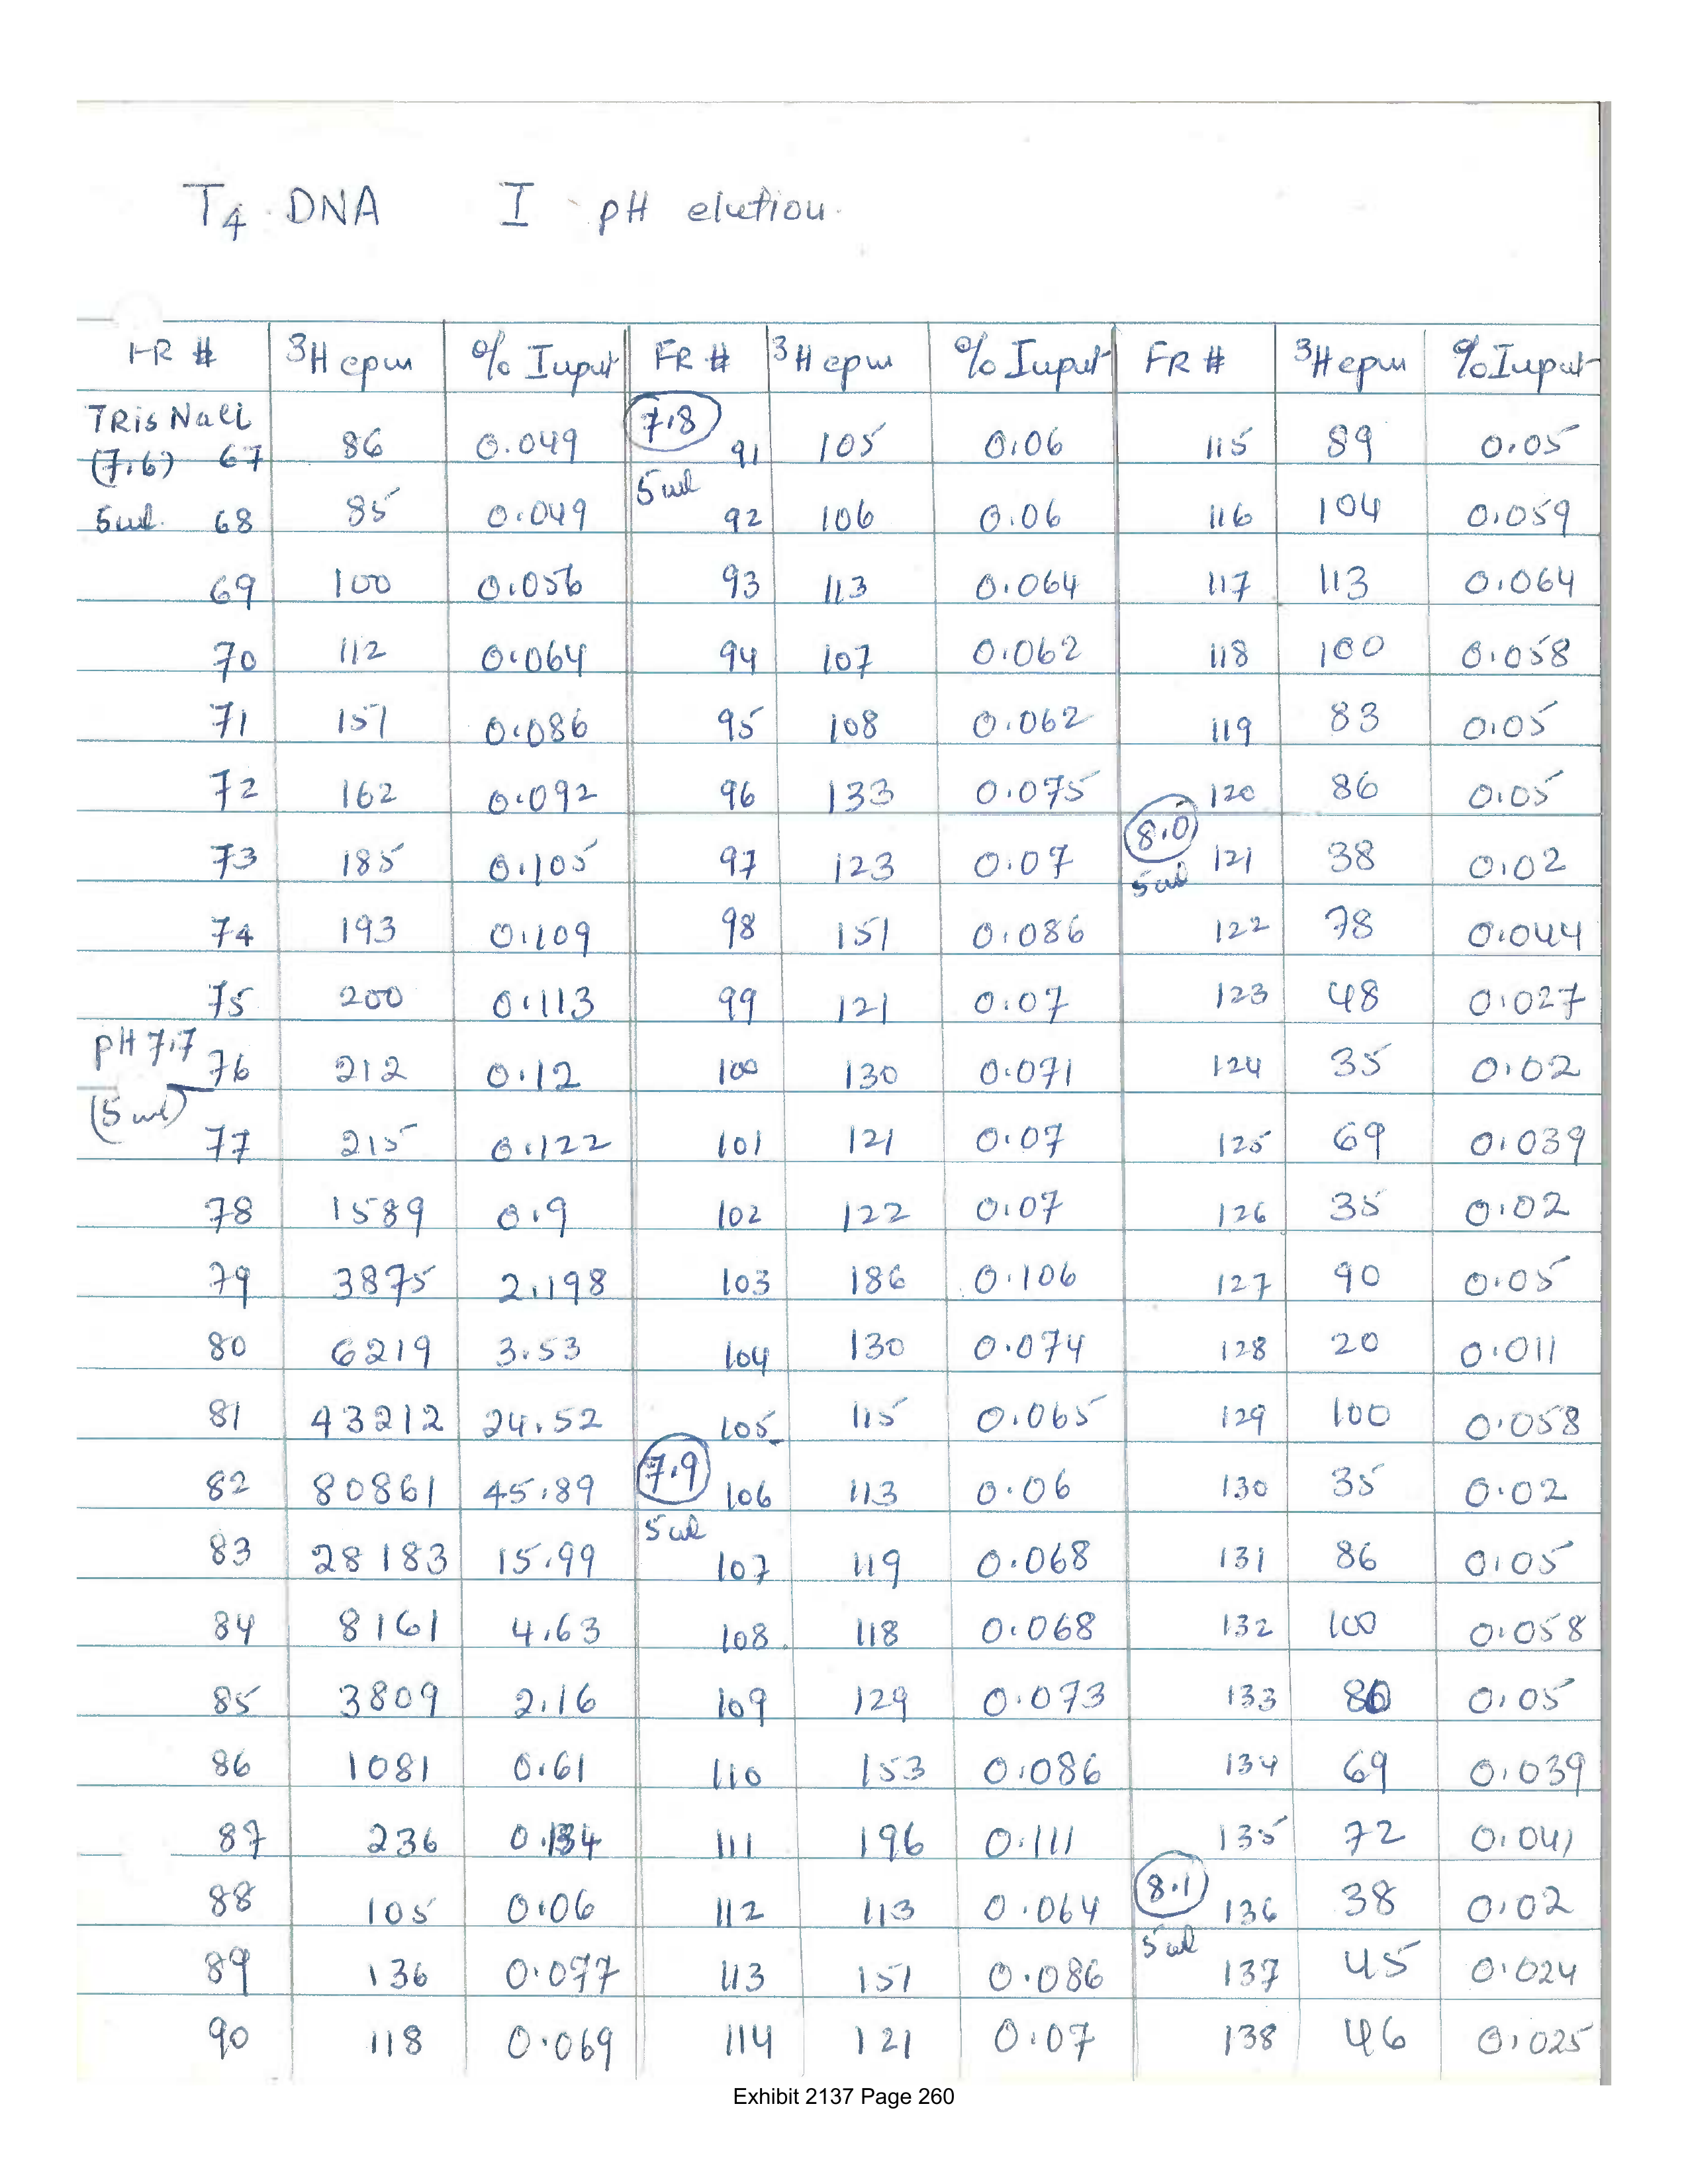 T4 DNA I pH elution
FR # 3H cpm % Input FR # 3H cpm % Input FR # 3H cpm % Input
TRis NaCl 7.8
(7.6) 67 86 0.049 91 105 0.06 115 89 0.05
5ml 68 85 0.049 5ml 92 106 0.06 116 104 0.059
69 100 0.056 93 113 0.064 117 113 0.064
70 112 0.064 94 107 0.062 118 100 0.058
71 151 0.086 95 108 0.062 119 83 0.05
72 162 0.092 96 133 0.075 120 86 0.05
73 185 0.105 97 123 0.07 8.0 5ml 121 38 0.02
74 193 0.109 98 151 0.086 122 78 0.044
75 200 0.113 99 121 0.07 123 48 0.027
pH 7.7 76 212 0.12 100 130 0.071 124 35 0.02
(5ml) 77 215 0.122 101 121 0.07 125 69 0.039
78 1589 0.9 102 122 0.07 126 35 0.02
79 3875 2.198 103 186 0.106 127 90 0.05
80 6219 3.53 104 130 0.074 128 20 0.011
81 43212 24.52 105 115 0.065 129 100 0.058
82 80861 45.89 7.9 106 113 0.06 130 35 0.02
83 28183 15.99 5ml 107 119 0.068 131 86 0.05
84 8161 4.63 108 118 0.068 132 100 0.058
85 3809 2.16 109 129 0.073 133 86 0.05
86 1081 0.61 110 153 0.086 134 69 0.039
87 236 0.134 111 196 0.111 135 72 0.041
88 105 0.06 112 113 0.064 8.1 136 38 0.02
89 136 0.077 113 151 0.086 5ml 137 45 0.024
90 118 0.069 114 121 0.07 138 46 0.025
Exhibit 2137 Page 260